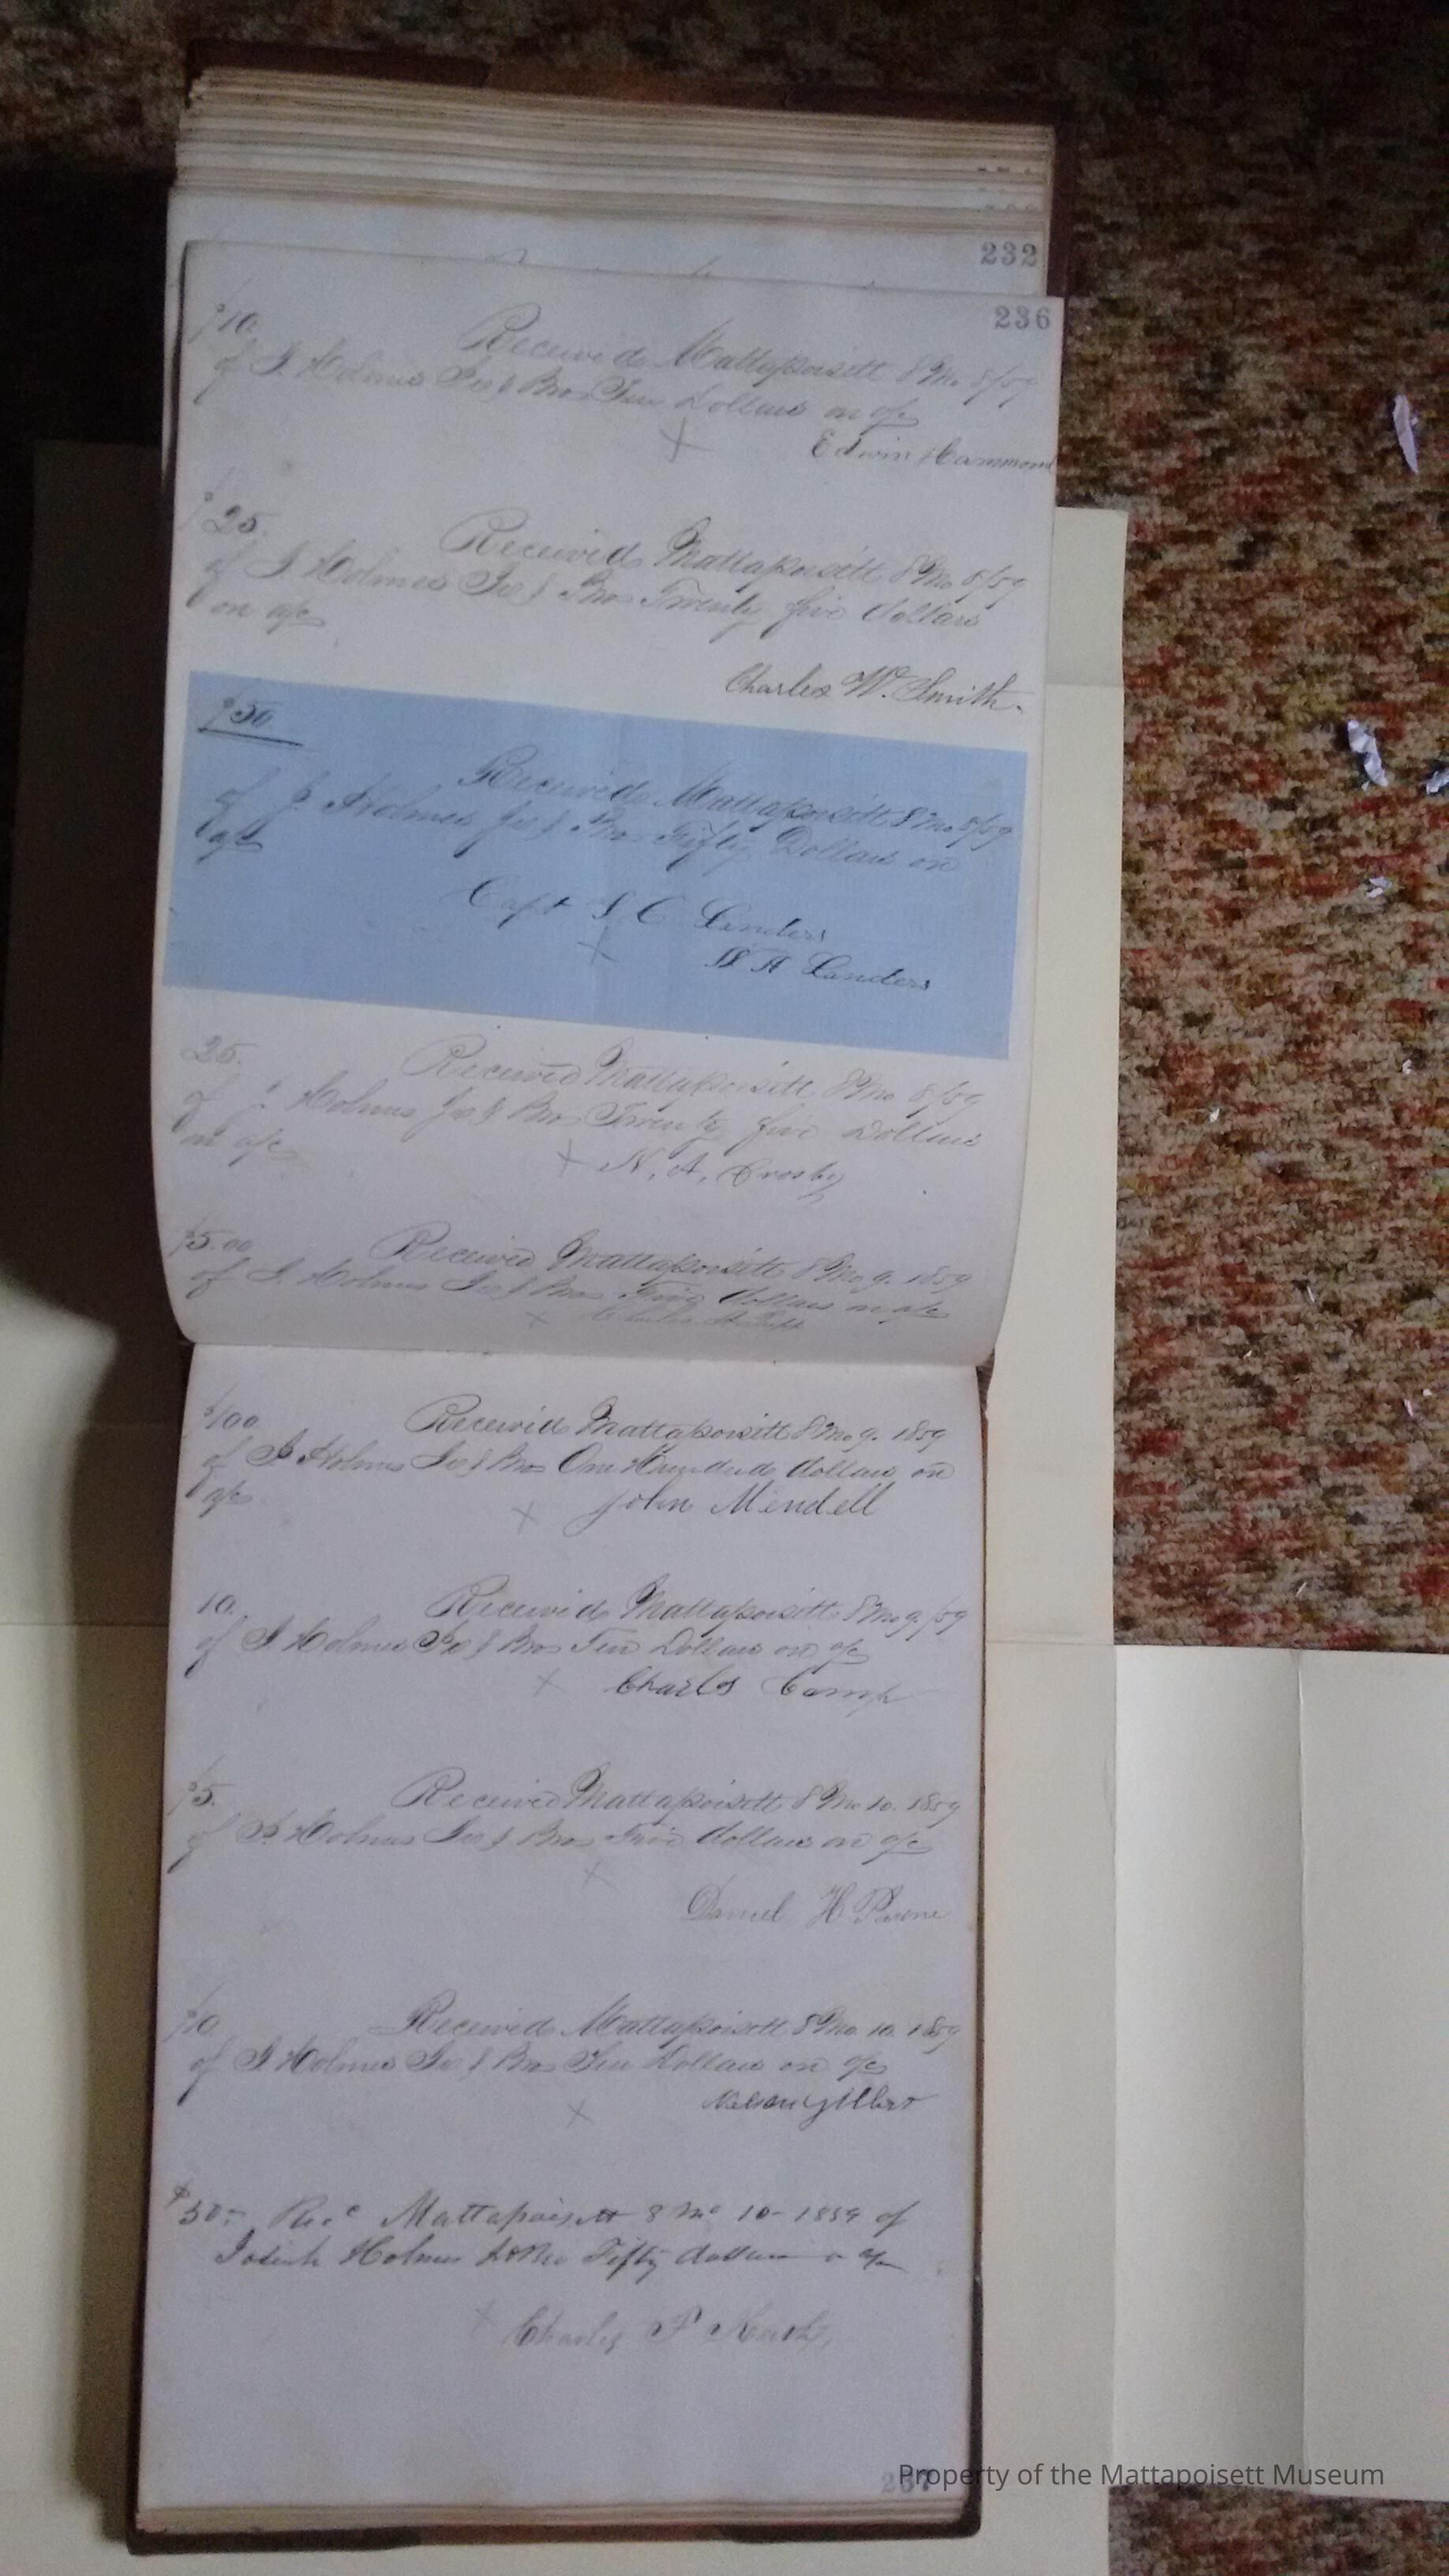 232
236
$10. Received Mattapoisett 8 Mo 8/59
of J. Holmes Jr & Bro Ten Dollars on a/c
X Edwin Hammond
$25. Received Mattapoisett 8 Mo 8/59
of J. Holmes Jr & Bro Twenty five dollars
on a/c
Charles W. Smith.
$50 Received Mattapoisett 8 Mo 8/59
of J. Holmes Jr & Bro Fifty Dollars on
a/c
Capt S. C Landers
X Landers
25. Received Mattapoisett 8 Mo 8/59
of J Holmes Jr & Bro Twenty five Dollars
on a/c
X N. A. Crosby
$5.00 Received Mattapoisett 8 Mo 9. 1859
of J. Holmes Jr & Bro Five dollars on a/c
X Charles
$100 Received Mattapoisett 8 Mo 9. 1859
of J Holmes Jr & Bro One Hundred dollars on
a/c
X John Mendell
10. Received Mattapoisett 8 Mo 9/59
of J Holmes Jr & Bro Ten Dollars on a/c
X Charles Camp
$5. Received Mattapoisett 8 Mo 10. 1859
of J. Holmes Jr & Bro Five dollars on a/c
X
Daniel H
$10 Received Mattapoisett 8 Mo 10. 1859
of J Holmes Jr & Bro Ten Dollars on a/c
X Nelson Gilbert
$50- Recd Mattapoisett 8 Mo 10- 1859 of
Josiah Holmes Jr & Bro Fifty dollars on a/c
X Charles F
237
Property of the Mattapoisett Museum